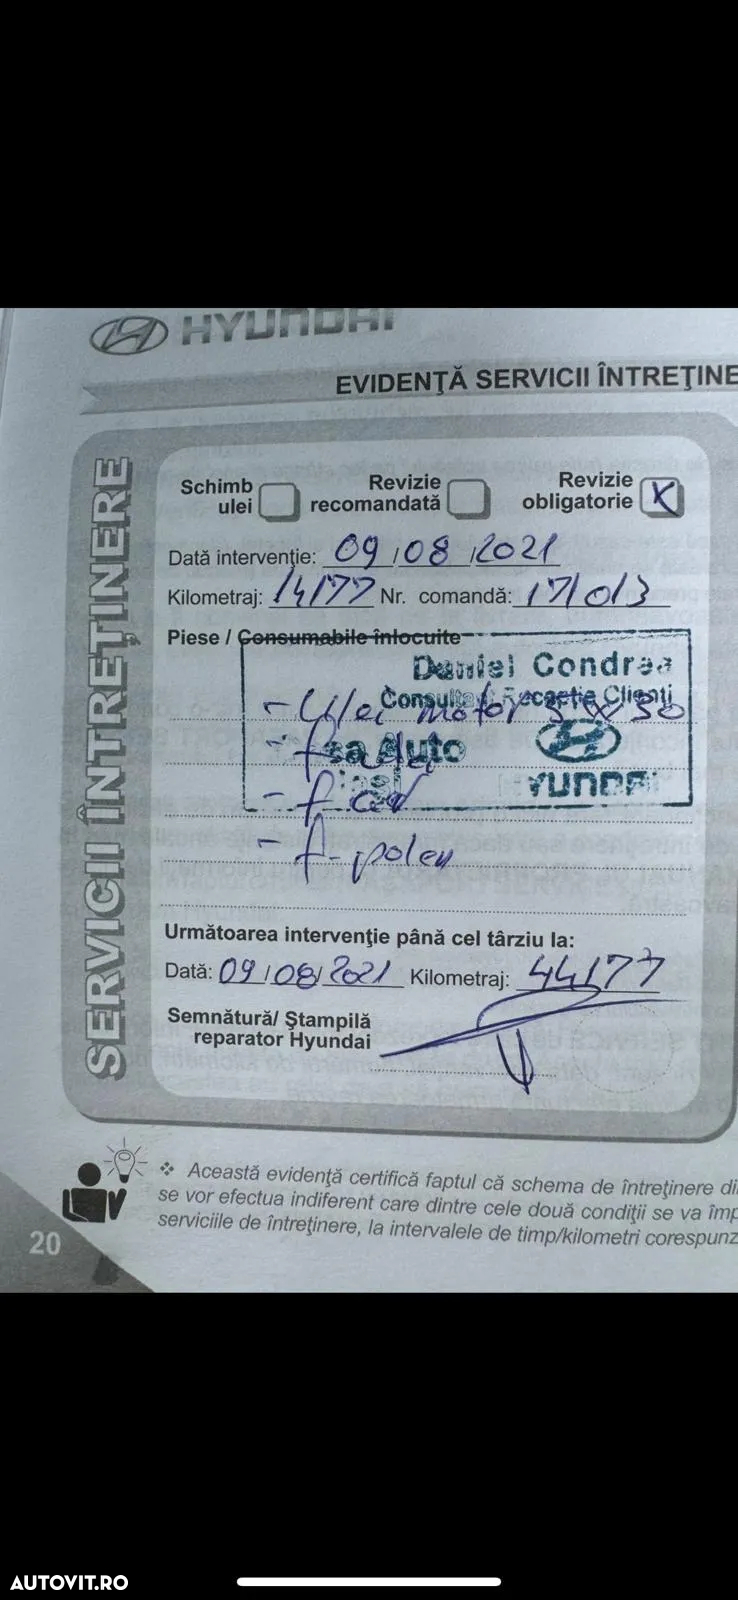 HYUNDAI
EVIDENŢĂ SERVICII ÎNTREŢINE
SERVICII ÎNTREŢINERE
Schimb ulei
Revizie recomandată
Revizie obligatorie X
Dată intervenţie: 09/08/2021
Kilometraj: 14177 Nr. comandă: 171013
Piese / Consumabile înlocuite
Daniel Condrea
Consultant Recepţie Clienţi
- Ulei motor 5W30
Auto
HYUNDAI
- f. ulei
- f. aer
- f. polen
Următoarea intervenţie până cel târziu la:
Dată: 09/08/2021 Kilometraj: 44177
Semnătură/ Ştampilă
reparator Hyundai
❖ Această evidenţă certifică faptul că schema de întreţinere di
se vor efectua indiferent care dintre cele două condiţii se va împ
serviciile de întreţinere, la intervalele de timp/kilometri corespunz
20
AUTOVIT.RO